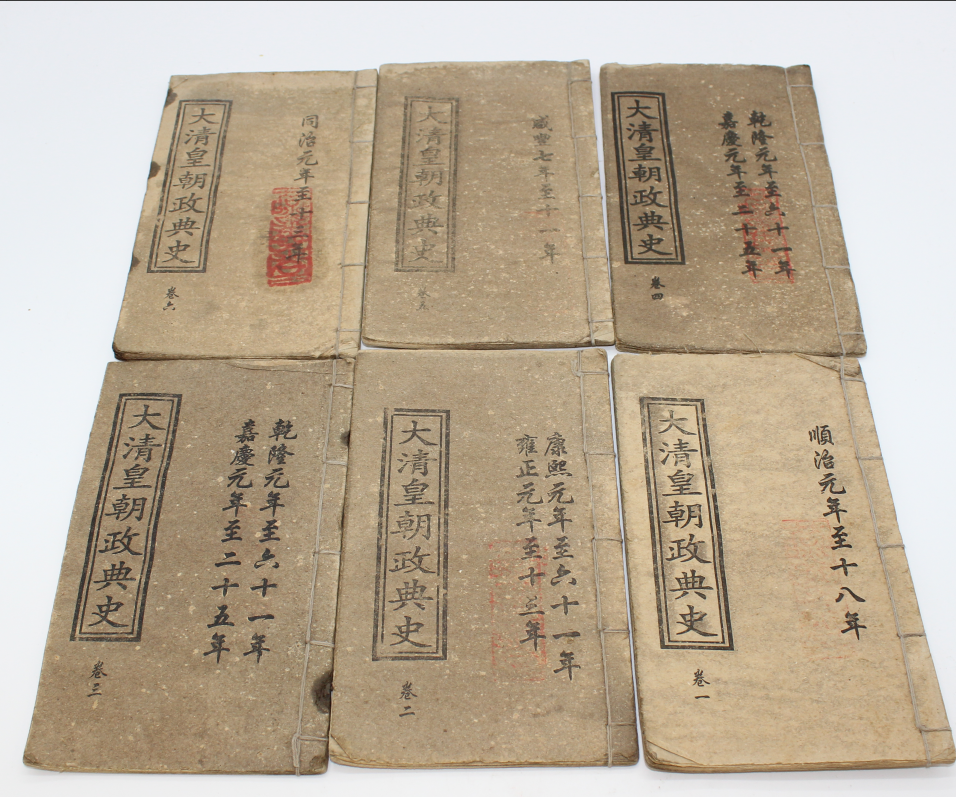 同治元年至十三年
大清皇朝政典史
卷六
咸豐七年至十一年
大清皇朝政典史
卷五
乾隆元年至六十一年
嘉慶元年至二十五年
大清皇朝政典史
卷四
乾隆元年至六十一年
嘉慶元年至二十五年
大清皇朝政典史
卷三
康熙元年至六十一年
雍正元年至十三年
大清皇朝政典史
卷二
順治元年至十八年
大清皇朝政典史
卷一